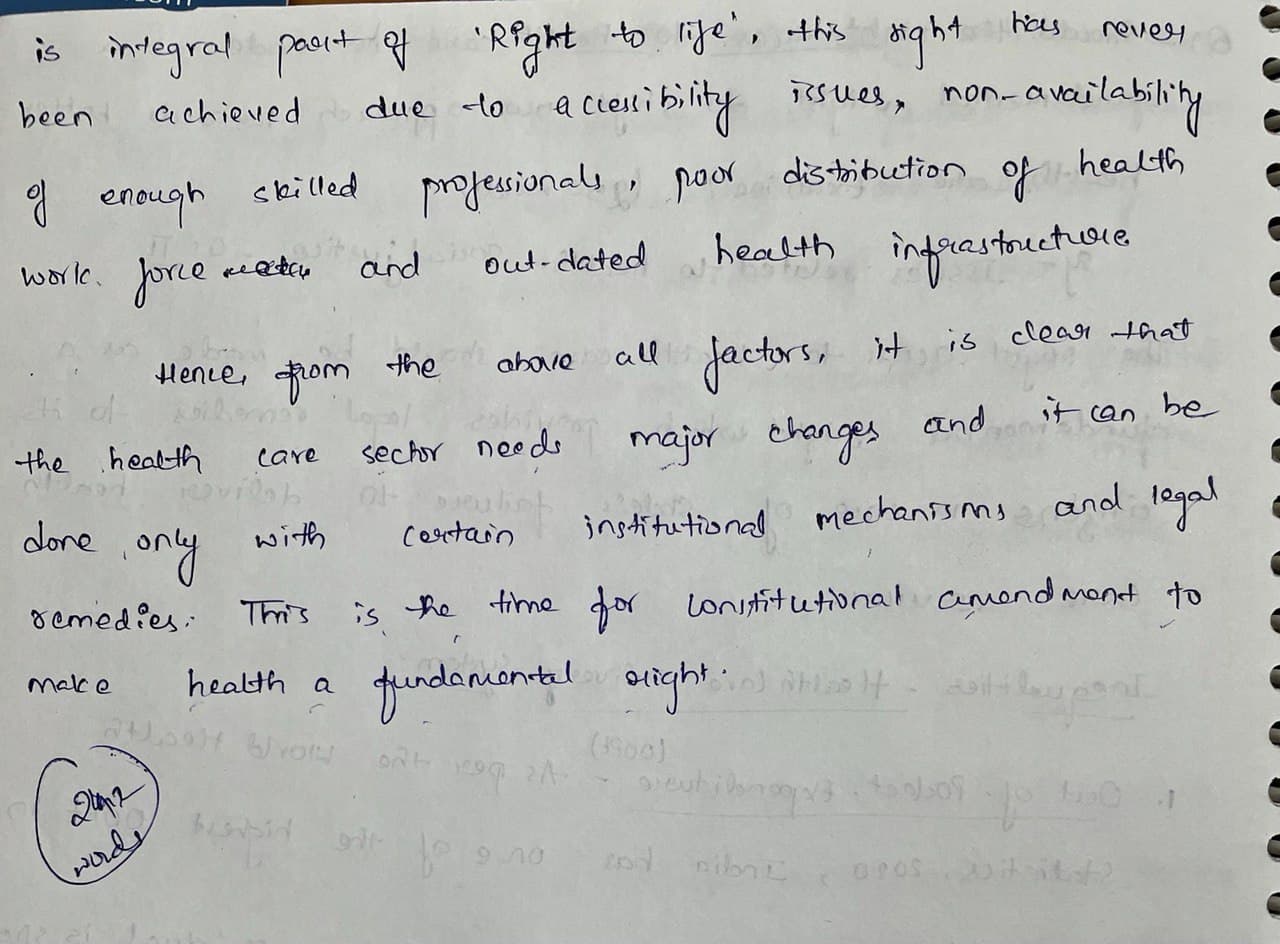 is integral part of 'Right to life', this right has never
been achieved due to accessibility issues, non-availability
of enough skilled professionals, poor distribution of health
work force and out-dated health infrastructure
Hence, from the above all factors, it is clear that
the health care sector needs major changes and it can be
done only with certain institutional mechanisms and legal
remedies. This is the time for constitutional amendment to
make health a fundamental right.
words